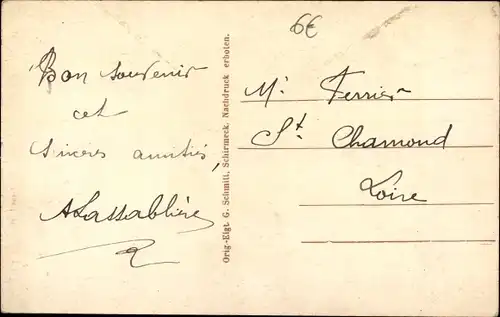 6€
Bon souvenir
et
sinceres amitiés,
ALassablière
Orig.-Eigt. G. Schmitt, Schirmeck. Nachdruck erboten.
Mr Ferrier
St. Chamond
Loire